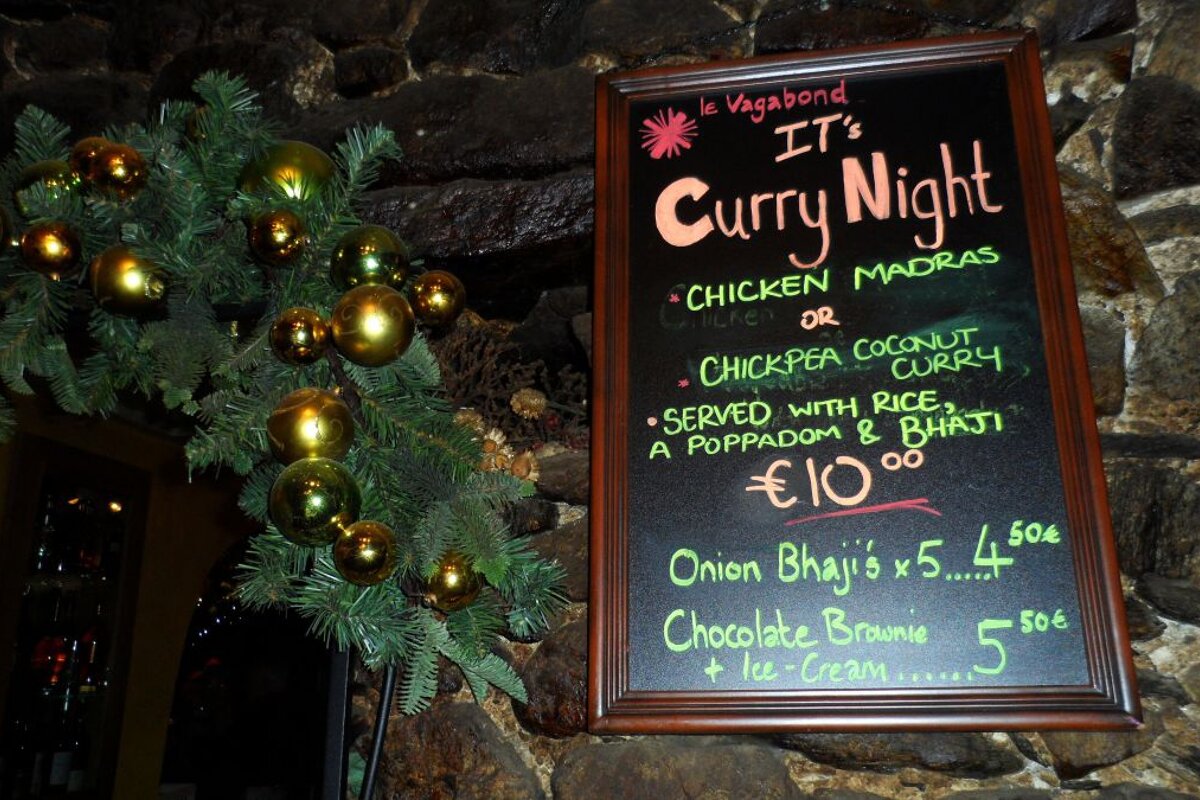 le Vagabond
IT's
Curry Night
* CHICKEN MADRAS
OR
* CHICKPEA COCONUT
CURRY
• SERVED WITH RICE,
A POPPADOM & BHAJI
€10 00
Onion Bhaji's x 5.....4 50€
Chocolate Brownie
+ Ice-Cream ...... 5 50€